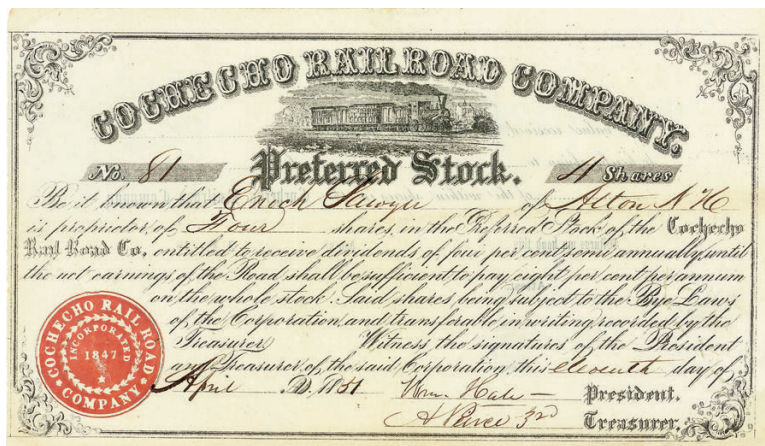 COCHECHO RAILROAD COMPANY.
No. 81 Preferred Stock. 4 Shares
Be it known that Enoch Sawyer of Alton N H
is proprietor of Four shares, in the Preferred Stock of the Cochecho
Rail Road Co. entitled to receive dividends of four per cent, semi annually, until
the net earnings of the Road, shall be sufficient to pay eight per cent per annum
on the whole stock. Said shares being subject to the Bye Laws
of the Corporation, and transferable in writing recorded by the
Treasurer. Witness the signatures of the President
and Treasurer of the said Corporation, this eleventh day of
April A.D. 1851 Wm. Hale President.
A Peirce 3rd Treasurer.
COCHECHO RAIL ROAD COMPANY
INCORPORATED
1847